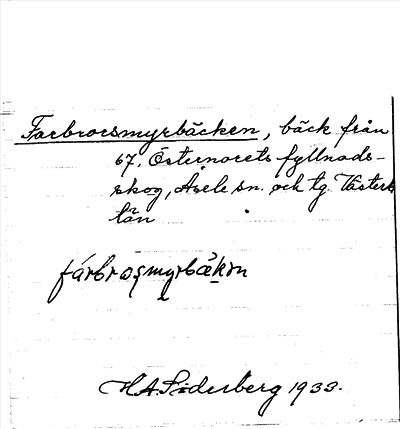 Farbrorsmyrbäcken, bäck från
67. Östernorets fyllnads-
skog, Åsele sn. och tg. Västerb
län
fárbros̨myrbäkɛn
H.A. Söderberg 1933.